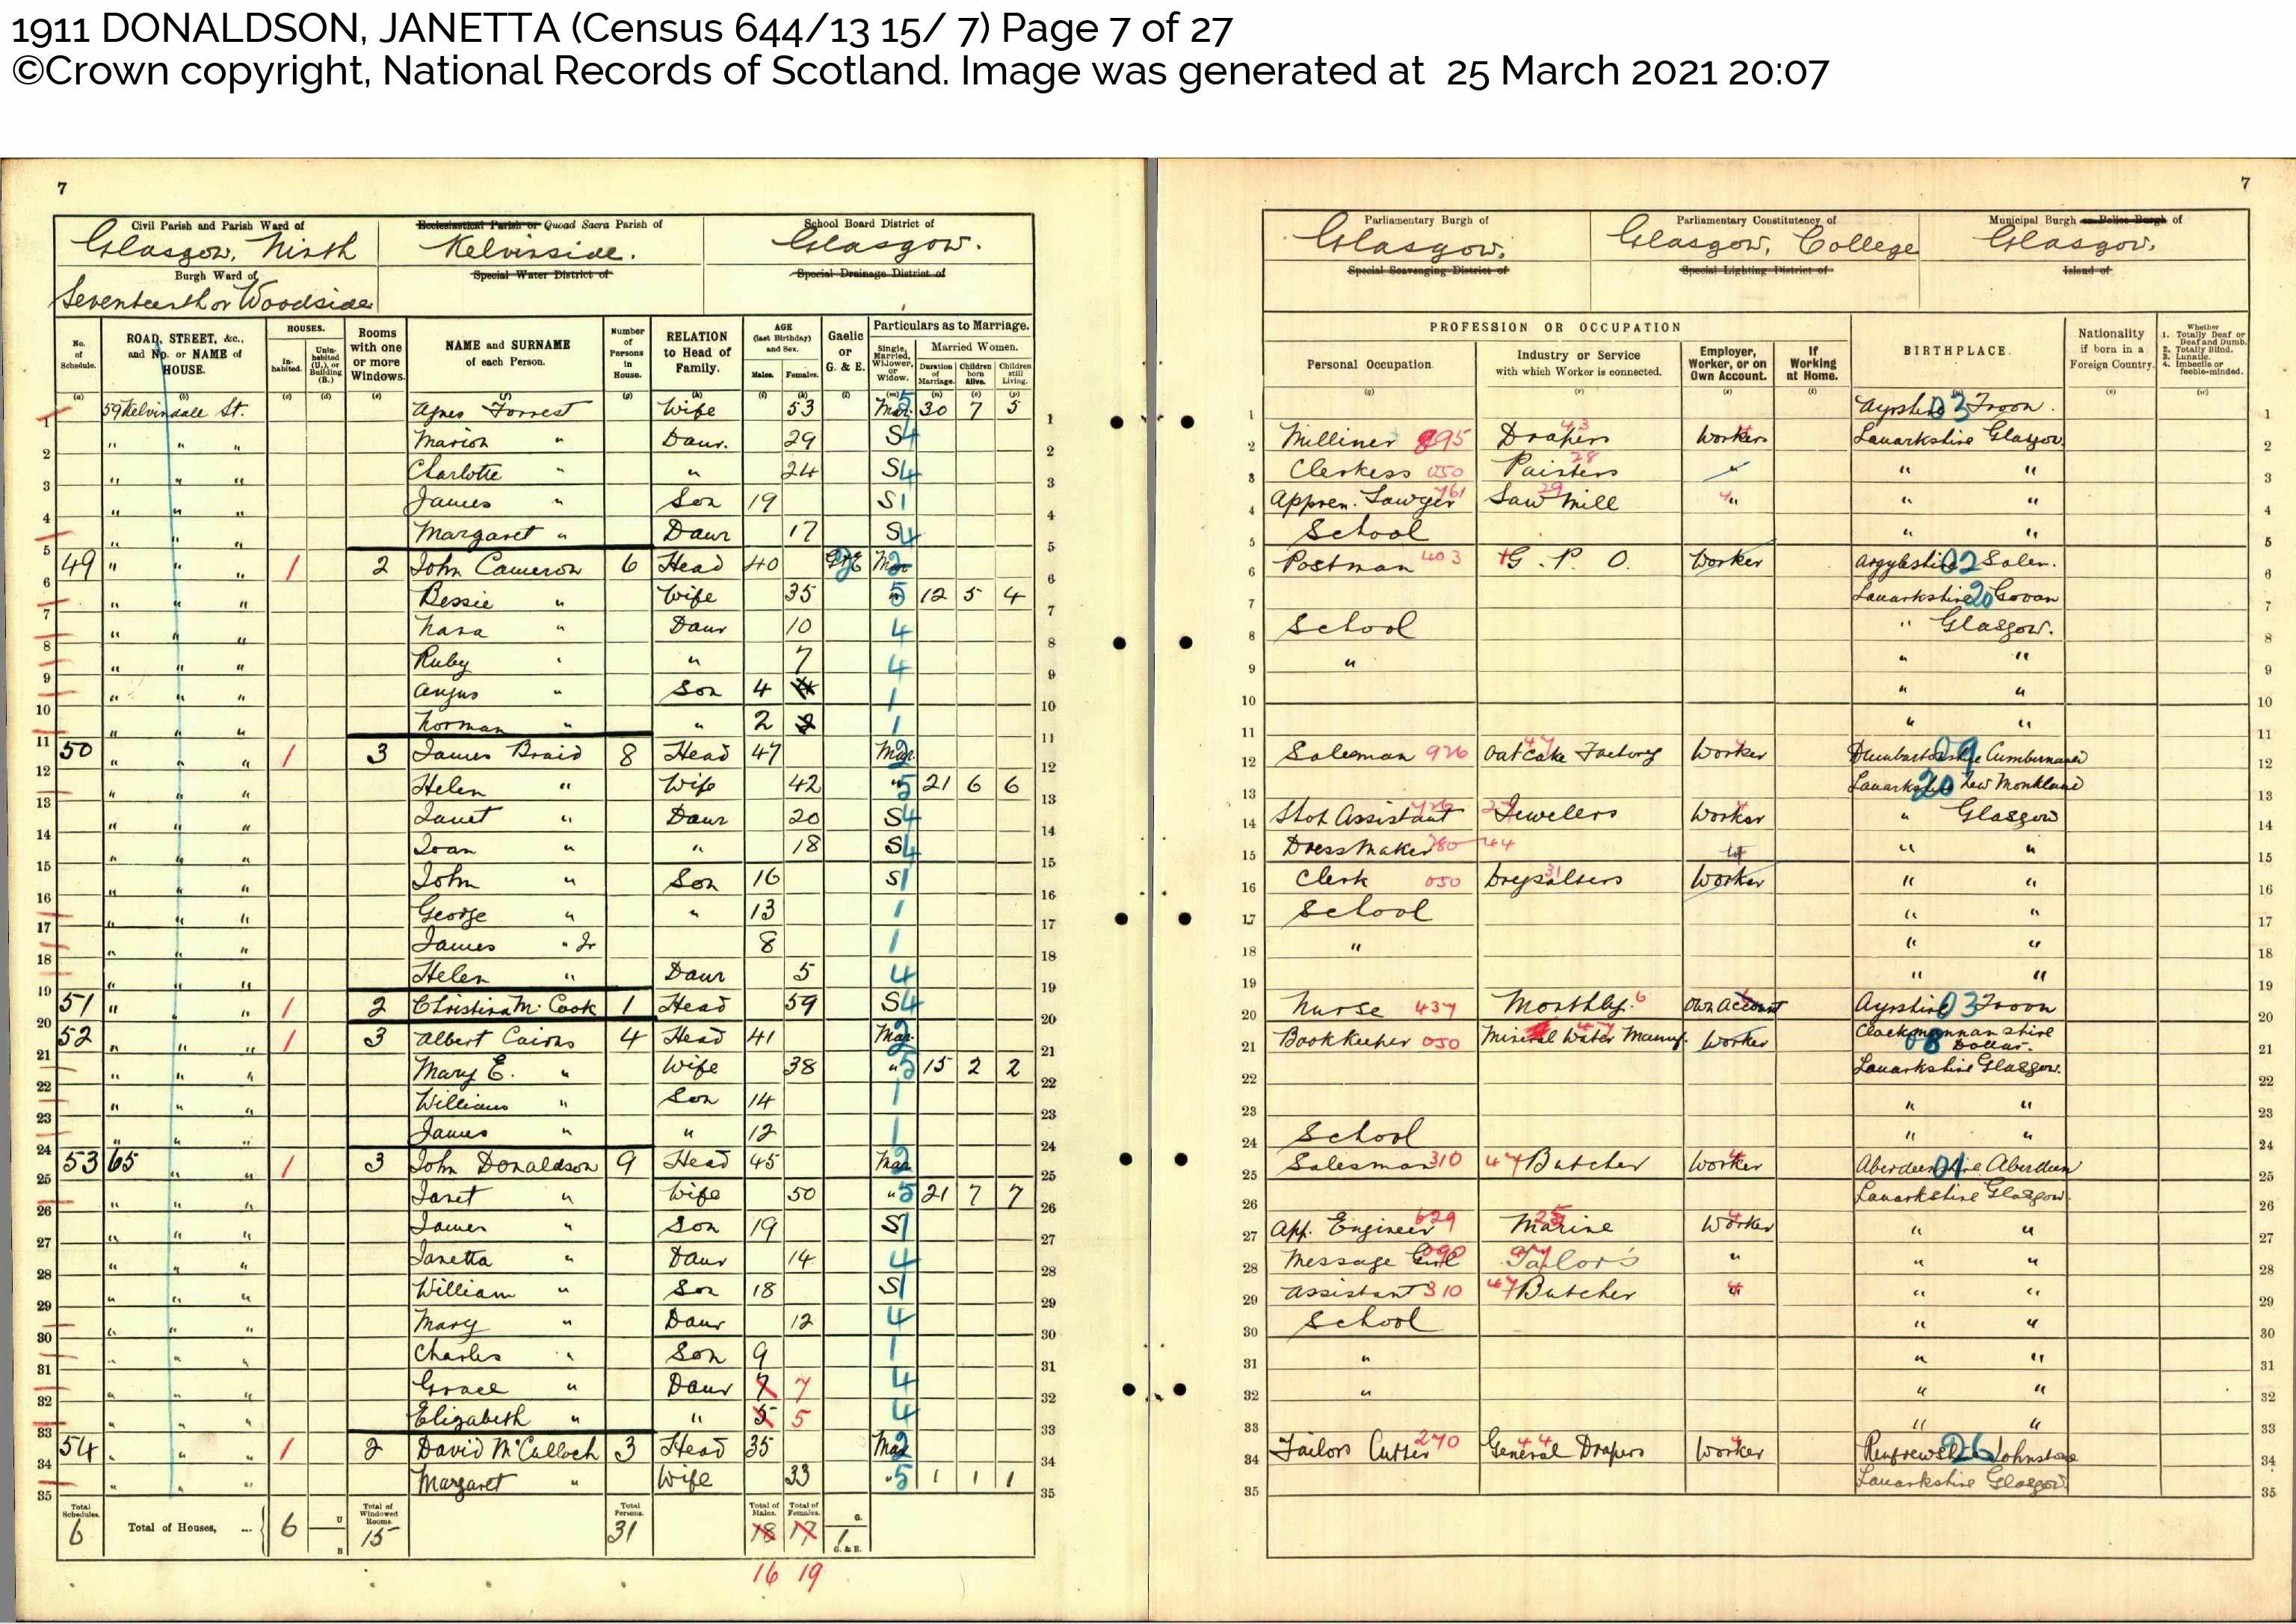 1911 DONALDSON, JANETTA (Census 644/13 15/ 7) Page 7 of 27
©Crown copyright, National Records of Scotland. Image was generated at 25 March 2021 20:07
7
7
Civil Parish and Parish Ward of
Glasgow, Ninth
Ecclesiastical Parish or Quoad Sacra Parish of
Kelvinside.
School Board District of
Glasgow.
Burgh Ward of
Seventeenth or Woodside
Special Water District of
Special Drainage District of
Parliamentary Burgh of
Glasgow.
Parliamentary Constitutency of
Glasgow, College
Municipal Burgh or Police Burgh of
Glasgow.
Special Scavenging District of
Special Lighting District of
Island of
No. of Schedule.
ROAD, STREET, &c., and No. or NAME of HOUSE.
HOUSES.
In-habited.
Unin-habited (U.), or Building (B.)
Rooms with one or more Windows.
NAME and SURNAME of each Person.
Number of Persons in House.
RELATION to Head of Family.
AGE (last Birthday) and Sex.
Males.
Females.
Gaelic or G. & E.
Particulars as to Marriage.
Single, Married, Widower, or Widow.
Married Women.
Duration of Marriage.
Children born Alive.
Children still Living.
PROFESSION OR OCCUPATION
Personal Occupation.
Industry or Service with which Worker is connected.
Employer, Worker, or on Own Account.
If Working at Home.
BIRTHPLACE.
Nationality if born in a Foreign Country.
Whether 1. Totally Deaf or Deaf and Dumb. 2. Totally Blind. 3. Lunatic. 4. Imbecile or feeble-minded.
59 Kelvindale St. Agnes Forrest Wife 53 Mar 5 30 7 5 1 Ayrshire 03 Troon.
" " " Marion " Daur. 29 S4 2 Milliner 895 Drapers 43 Worker Lanarkshire Glasgow
" " " Charlotte " " 24 S4 3 Clerkess 050 Painters 28 " " "
" " " James " Son 19 S1 4 Appren. Sawyer 761 Saw Mill 29 " " "
" " " Margaret " Daur 17 S4 5 School " "
49 " " " 1 2 John Cameron 6 Head 40 G&E Mar 2 6 Postman 403 G. P. O. Worker Argyleshire 02 Salen.
" " " Bessie " Wife 35 " 5 12 5 4 7 Lanarkshire 20 Govan
" " " Nana " Daur 10 4 8 School " Glasgow.
" " " Ruby " " 7 4 9 " " "
" " " Angus " Son 4 4 1 10 " "
" " " Norman " " 2 2 1 11 " "
50 " " " 1 3 James Braid 8 Head 47 Mar 2 12 Salesman 926 Oat Cake Factory 47 Worker Dumbartonshire 09 Cumbernauld
" " " Helen " Wife 42 " 5 21 6 6 13 Lanarkshire 20 New Monkland
" " " Janet " Daur 20 S4 14 Shop Assistant Jewelers Worker " Glasgow
" " " Joan " " 18 S4 15 Dress Maker 780 44 " "
" " " John " Son 16 S1 16 Clerk 050 Drysalters 31 Worker " "
" " " George " " 13 1 17 School " "
" " " James " Jr 8 1 18 " " "
" " " Helen " Daur 5 4 19 " "
51 " " 1 2 Christina McCook 1 Head 59 S4 20 Nurse 437 Monthly. 6 Own Account Ayrshire 03 Troon
52 " " " 1 3 Albert Cairns 4 Head 41 Mar 2 21 Bookkeeper 050 Mineral Water Manuf. 47 Worker Clackmannanshire 08 Dollar.
" " " Mary E. " Wife 38 " 5 15 2 2 22 Lanarkshire Glasgow.
" " " William " Son 14 1 23 " "
" " " James " " 12 1 24 School " "
53 65 " " 1 3 John Donaldson 9 Head 45 Mar 2 25 Salesman 310 47 Butcher Worker 4 Aberdeenshire 01 Aberdeen
" " " Janet " Wife 50 " 5 21 7 7 26 Lanarkshire Glasgow.
" " " James " Son 19 S1 27 App. Engineer 629 Marine 25 Worker 4 " "
" " " Janetta " Daur 14 4 28 Message Girl Tailor's " " "
" " " William " Son 18 S1 29 Assistant 310 47 Butcher 4 " "
" " " Mary " Daur 12 4 30 School " "
" " " Charles " Son 9 1 31 " " "
" " " Grace " Daur 7 7 4 32 " " "
" " " Elizabeth " " 5 5 4 33 " "
54 " " " 1 2 David McCulloch 3 Head 35 Mar 2 34 Tailors Cutter 270 General Drapers 44 Worker 4 Renfrewshire 26 Johnstone
" " " Margaret " Wife 33 " 5 1 1 1 35 Lanarkshire Glasgow.
Total Schedules. 6
Total of Houses, ... 6 U B
Total of Windowed Rooms. 15
Total Persons. 31
Total of Males. 18
Total of Females. 17
G. 1 G. & E.
16 19